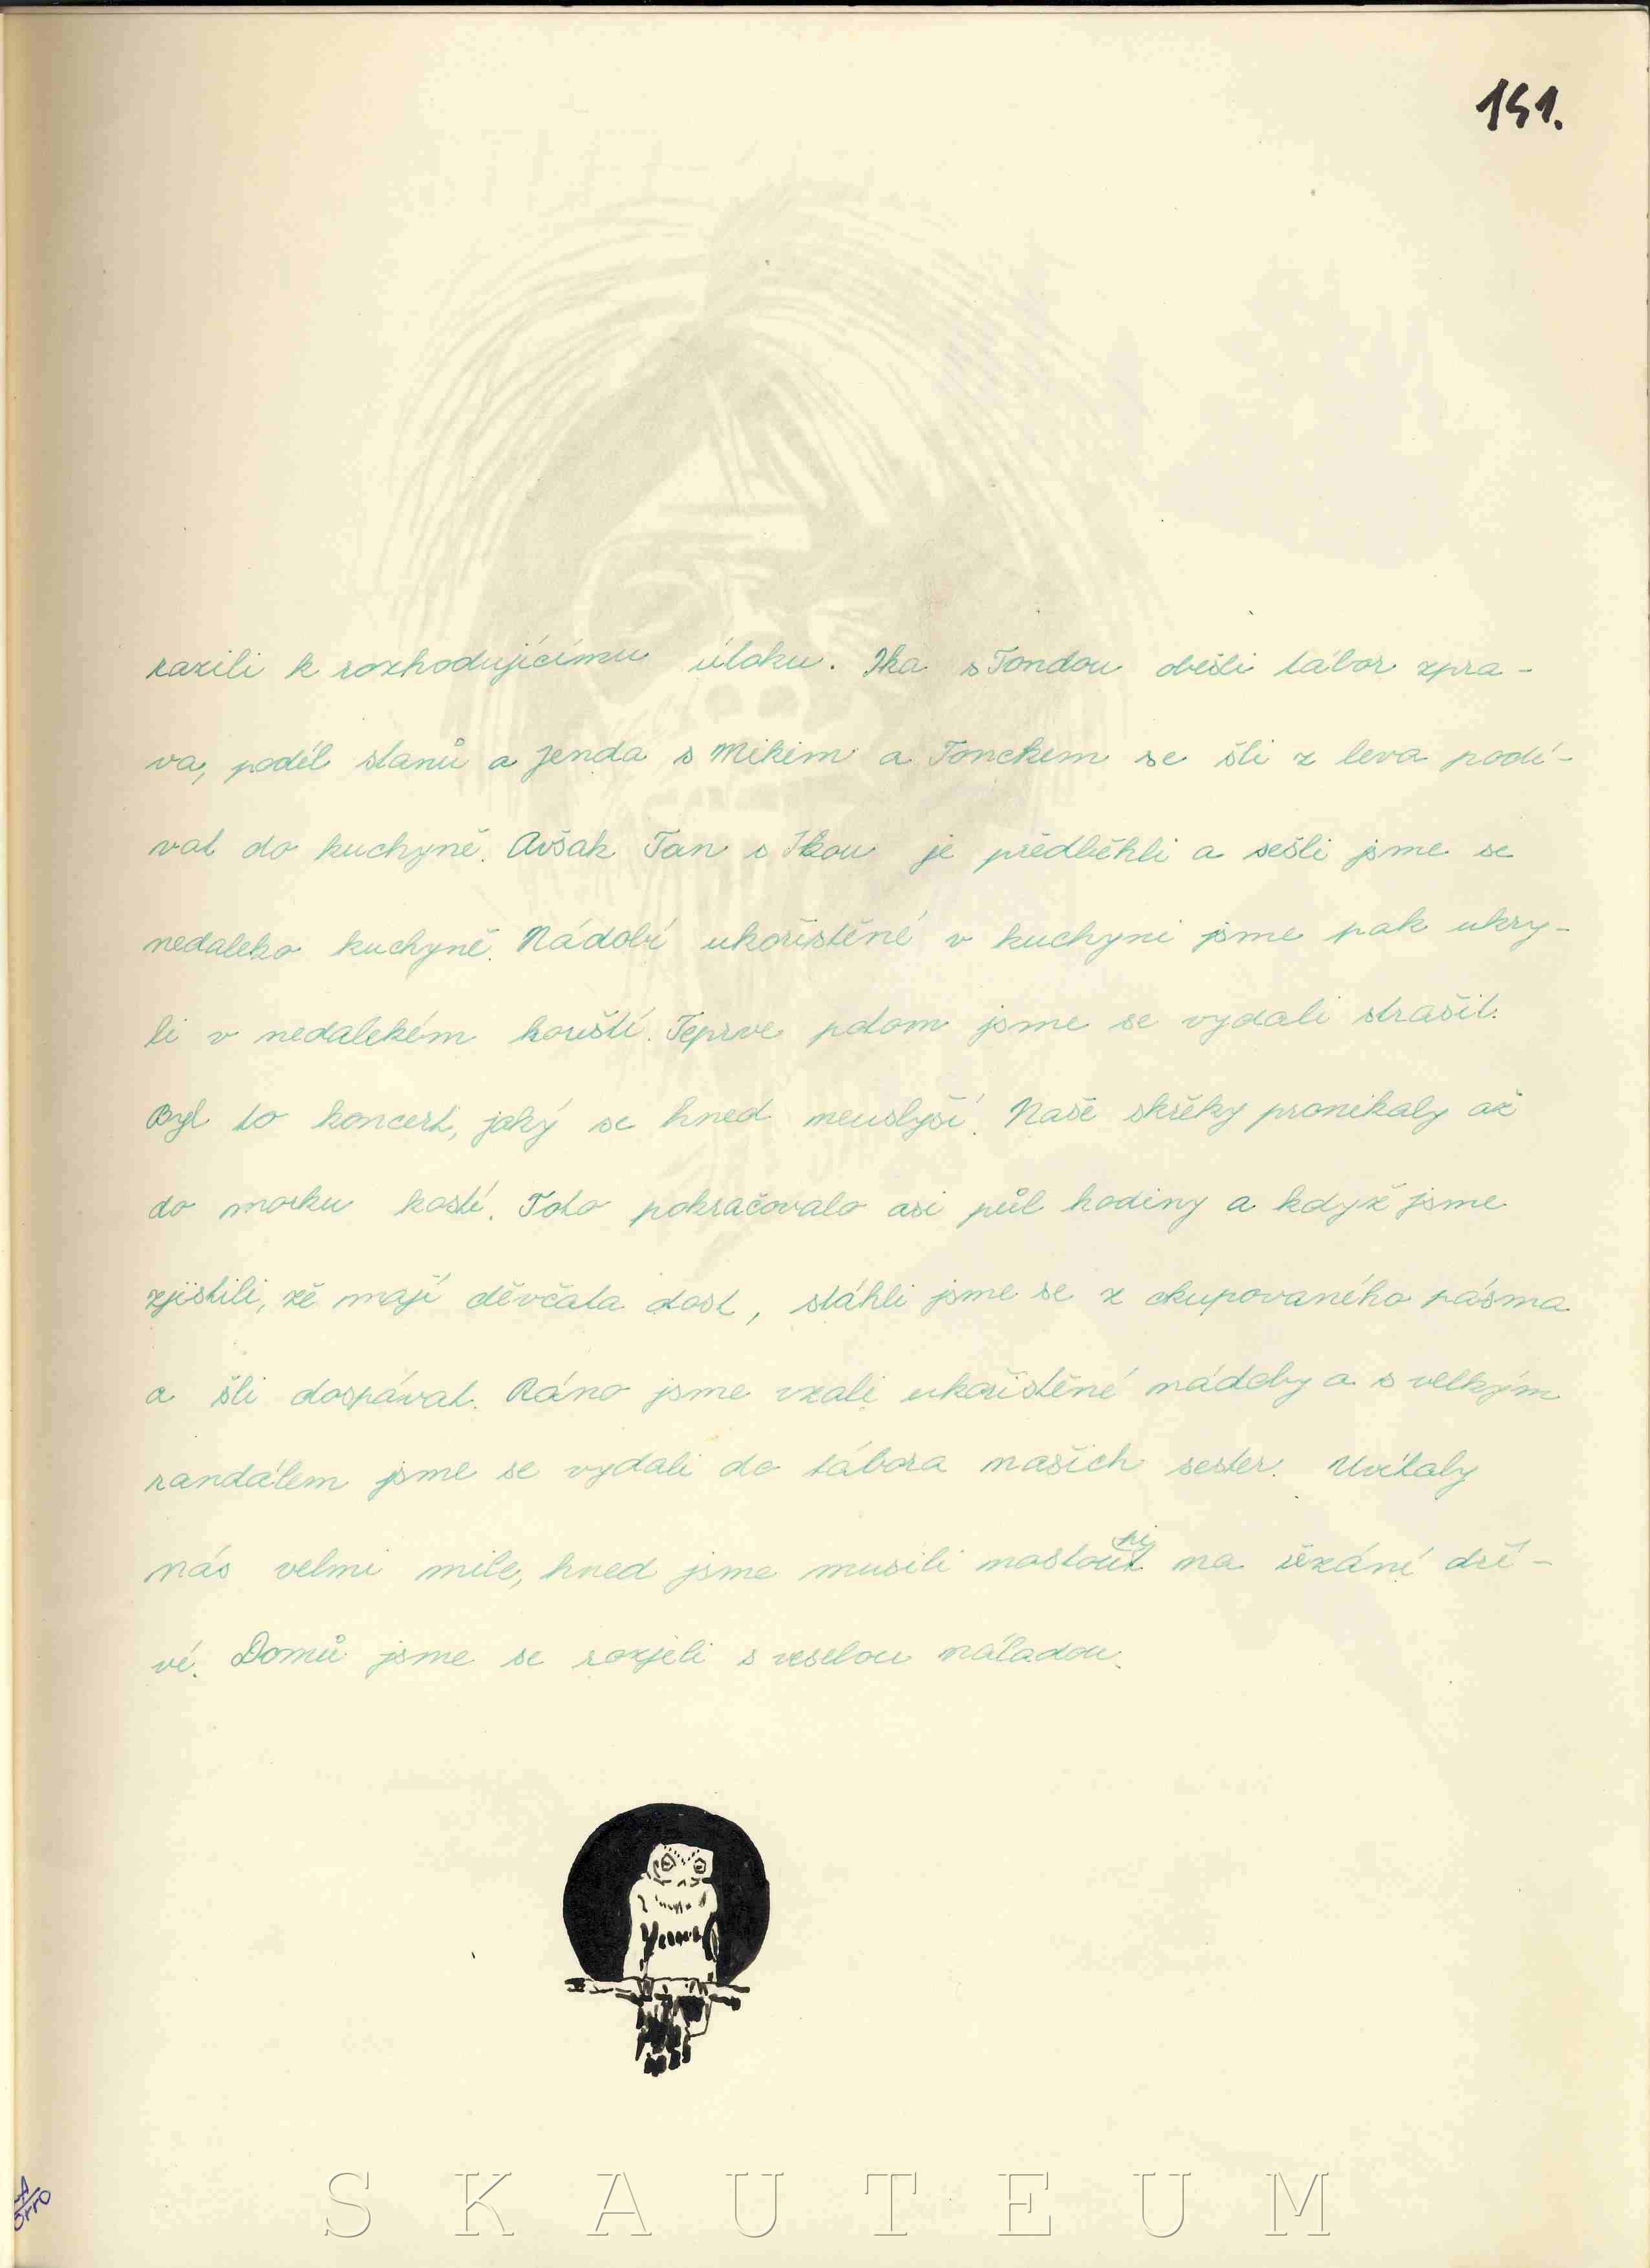 151.
razili k rozhodujícímu útoku. Ika s Tondou obešli tábor zpra-
va, podél stanů a Jenda s Mikim a Tonckem se šli z leva podí-
vat do kuchyně. Avšak Tan s Ikou je předběhli a sešli jsme se
nedaleko kuchyně. Nádobí ukořistěné v kuchyni jsme pak ukry-
li v nedalekém houští. Teprve potom jsme se vydali strašit.
Byl to koncert, jaký se hned neuslyší. Naše skřeky pronikaly až
do morku kostí. Toto pokračovalo asi půl hodiny a když jsme
zjistili, že mají děvčata dost, stáhli jsme se z okupovaného pásma
a šli dospávat. Ráno jsme vzali ukořistěné nádoby a s velkým
randálem jsme se vydali do tábora našich sester. Uvítaly
nás velmi mile, hned jsme musili nastoupit na řezání dří-
ví. Domů jsme se rozjeli s veselou náladou.
SKAUTEUM